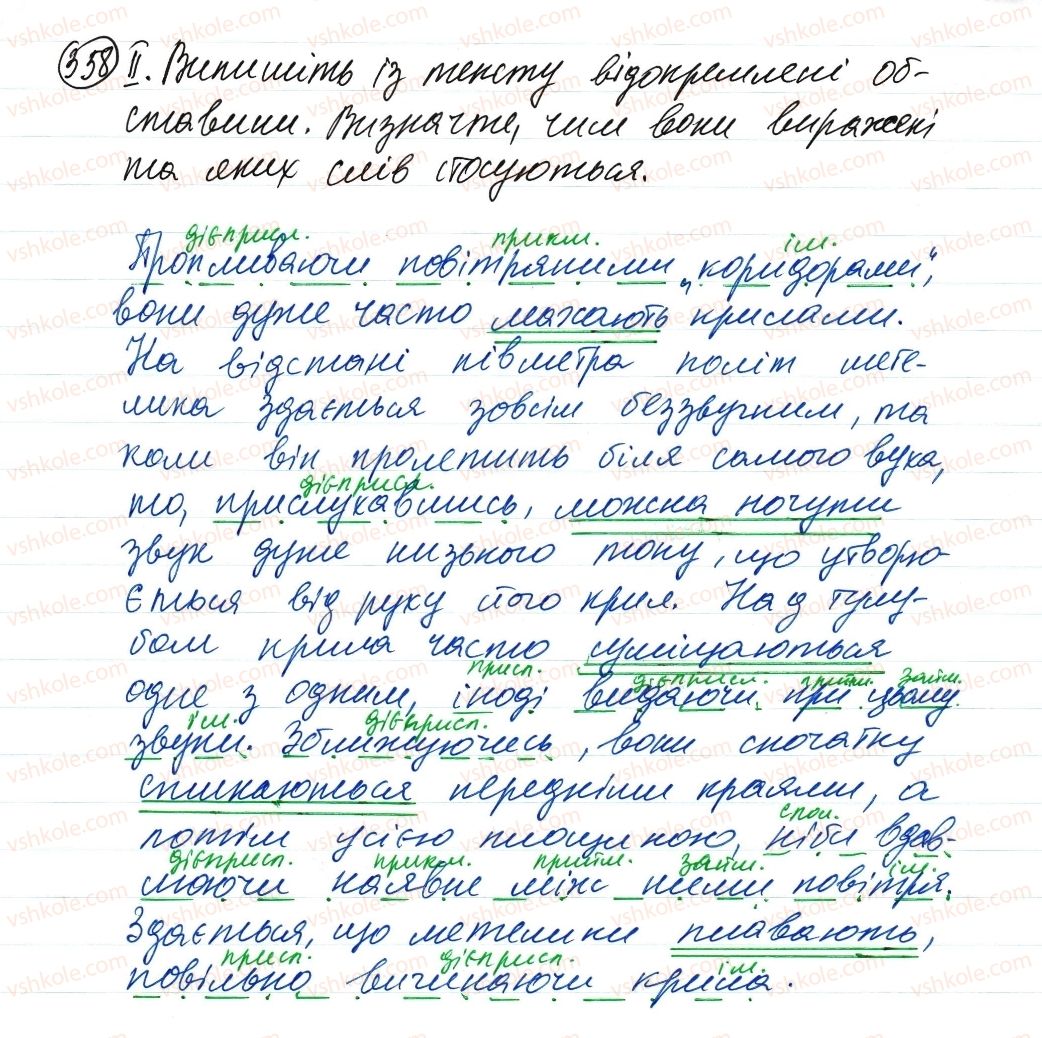 358 ІІ. Випишіть із тексту відокремлені об-
ставини. Визначте, чим вони виражені
та яких слів стосуються.
дієприсл. прикм. ім.
Пропливаючи повітряними „коридорами",
вони дуже часто махають крилами.
На відстані півметра політ мете-
лика здається зовсім беззвучним, та
коли він пролетить біля самого вуха,
дієприсл.
то, прислухавшись, можна почути
звук дуже низького тону, що утворю-
ється від руху його крил. Над тулу-
бом крила часто суміщаються
присл. дієприсл. прийм. займ.
одне з одним, іноді видаючи при цьому
ім. дієприсл.
звуки. Зближуючись, вони спочатку
стикаються передніми краями, а
спол.
потім усією площиною, ніби вдав-
дієприсл. прикм. прийм. займ. ім.
люючи наявне між ними повітря.
Здається, що метелики плавають,
присл. дієприсл. ім.
повільно вигинаючи крила.